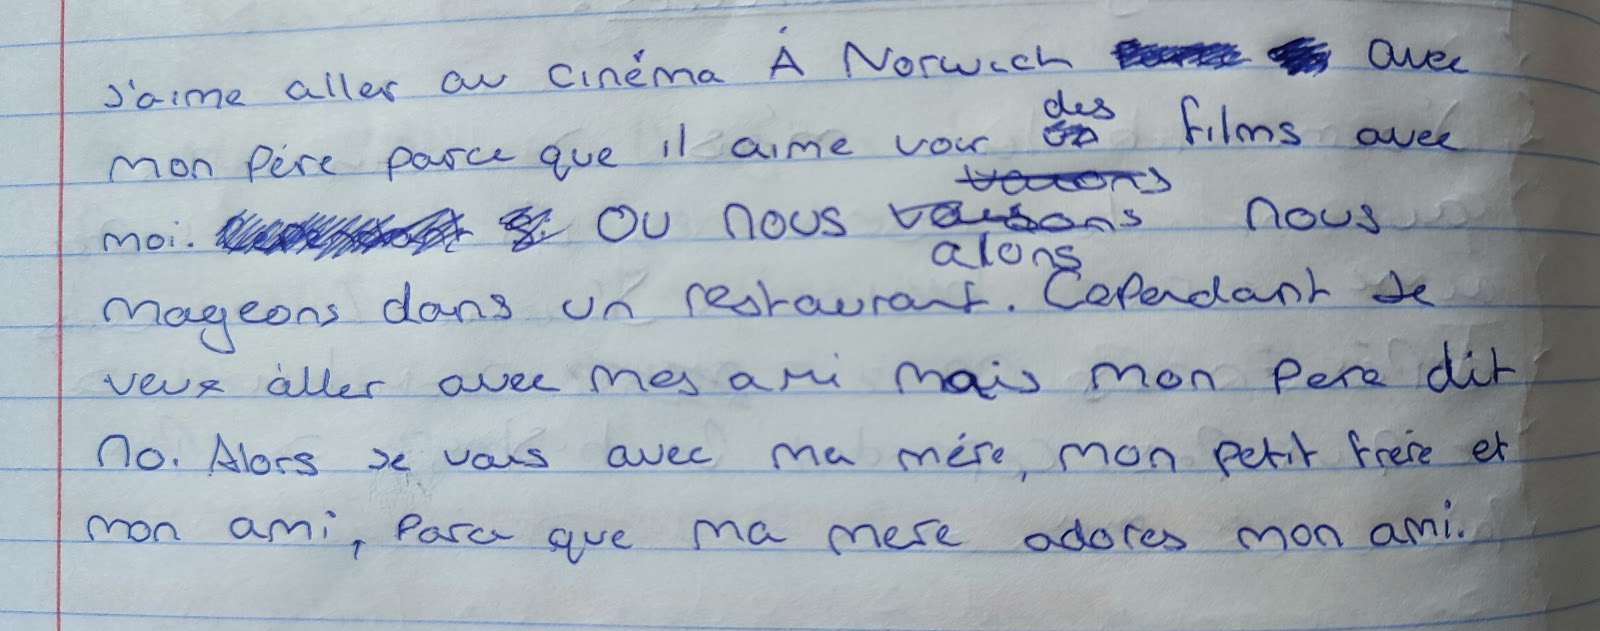 J'aime aller au cinéma À Norwich avec
mon Pére parce que il aime voir des films avec
moi. Ou nous alons nous
mageons dans un restaurant. Cependant Je
veux àller avec mes ami mais mon Pere dit
no. Alors Je vais avec ma mére, mon petit frére et
mon ami, Parce que ma mere adores mon ami.